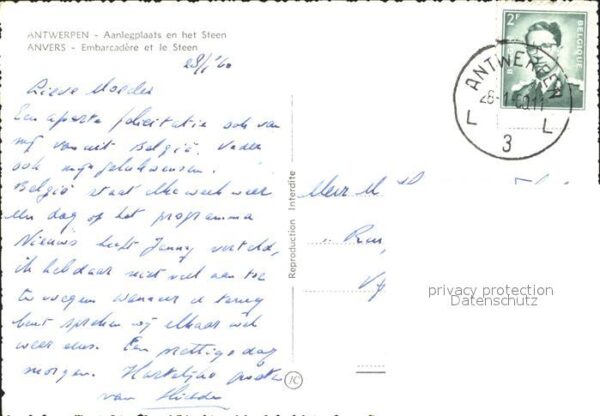 ANTWERPEN - Aanlegplaats en het Steen
ANVERS - Embarcadère et le Steen
28/1 '60
Lieve Moeder
Een aparte felicitatie ook van
mij vanuit België. Vader
ook mijn gelukwensen.
België staat elke week weer
een dag op het programma
Nieuws heeft Jenny verteld,
ik heb daar niet veel aan toe
te voegen wanneer u terug
bent spreken wij elkaar wel
weer eens. Een prettige dag
morgen. Hartelijke groeten
van
Reproduction Interdite
2F
BELGIQUE
ANTWERPEN
L L
3
privacy protection
Datenschutz